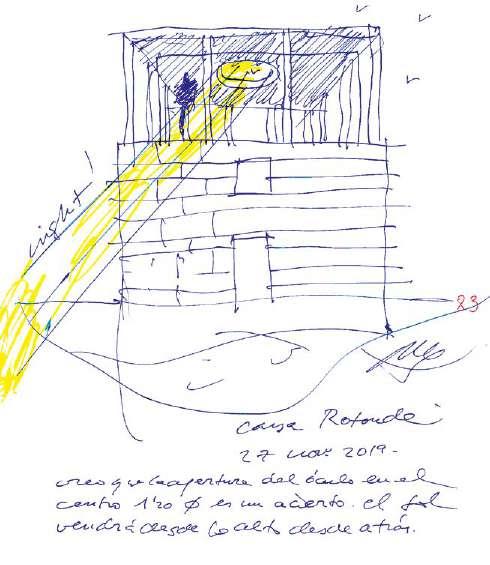 night
23
Casa Rotonda
27 nov 2019-
creo que la apertura del óculo en el
centro 1'20 Ø es un acierto. el sol
vendrá desde lo alto desde atrás.